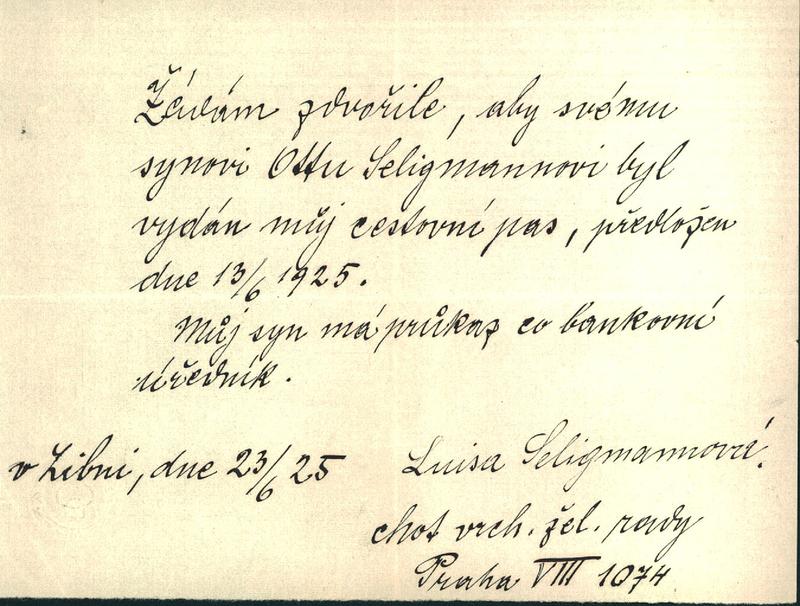 Žádám zdvořile, aby svému
synovi Ottu Seligmannovi byl
vydán můj cestovní pas, předložen
dne 13/6 1925.
Můj syn má průkaz co bankovní
úředník.
v Libni, dne 23/6 25
Luisa Seligmannová.
choť vrch. žel. rady
Praha VIII 1074